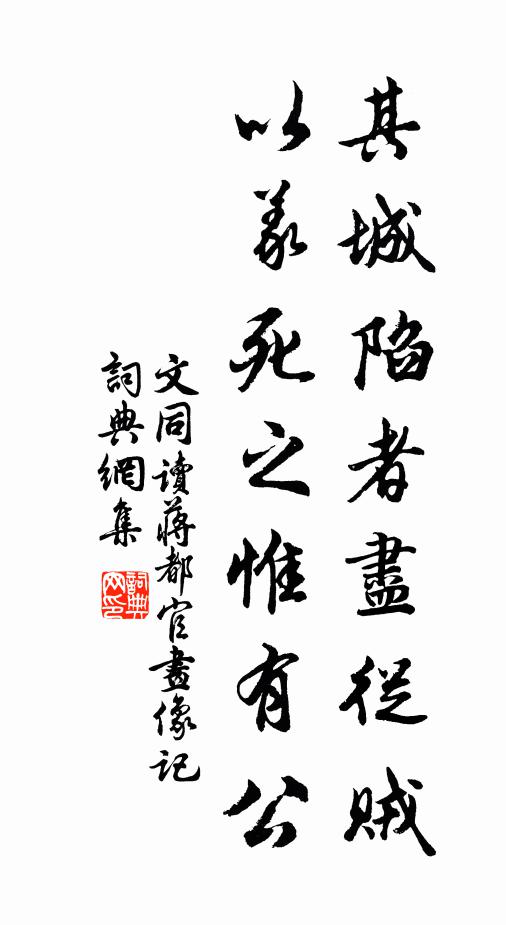 其城陷者盡從賊
以義死之惟有公
文同讀蔣都官畫像記
詞典網集
詞典網印